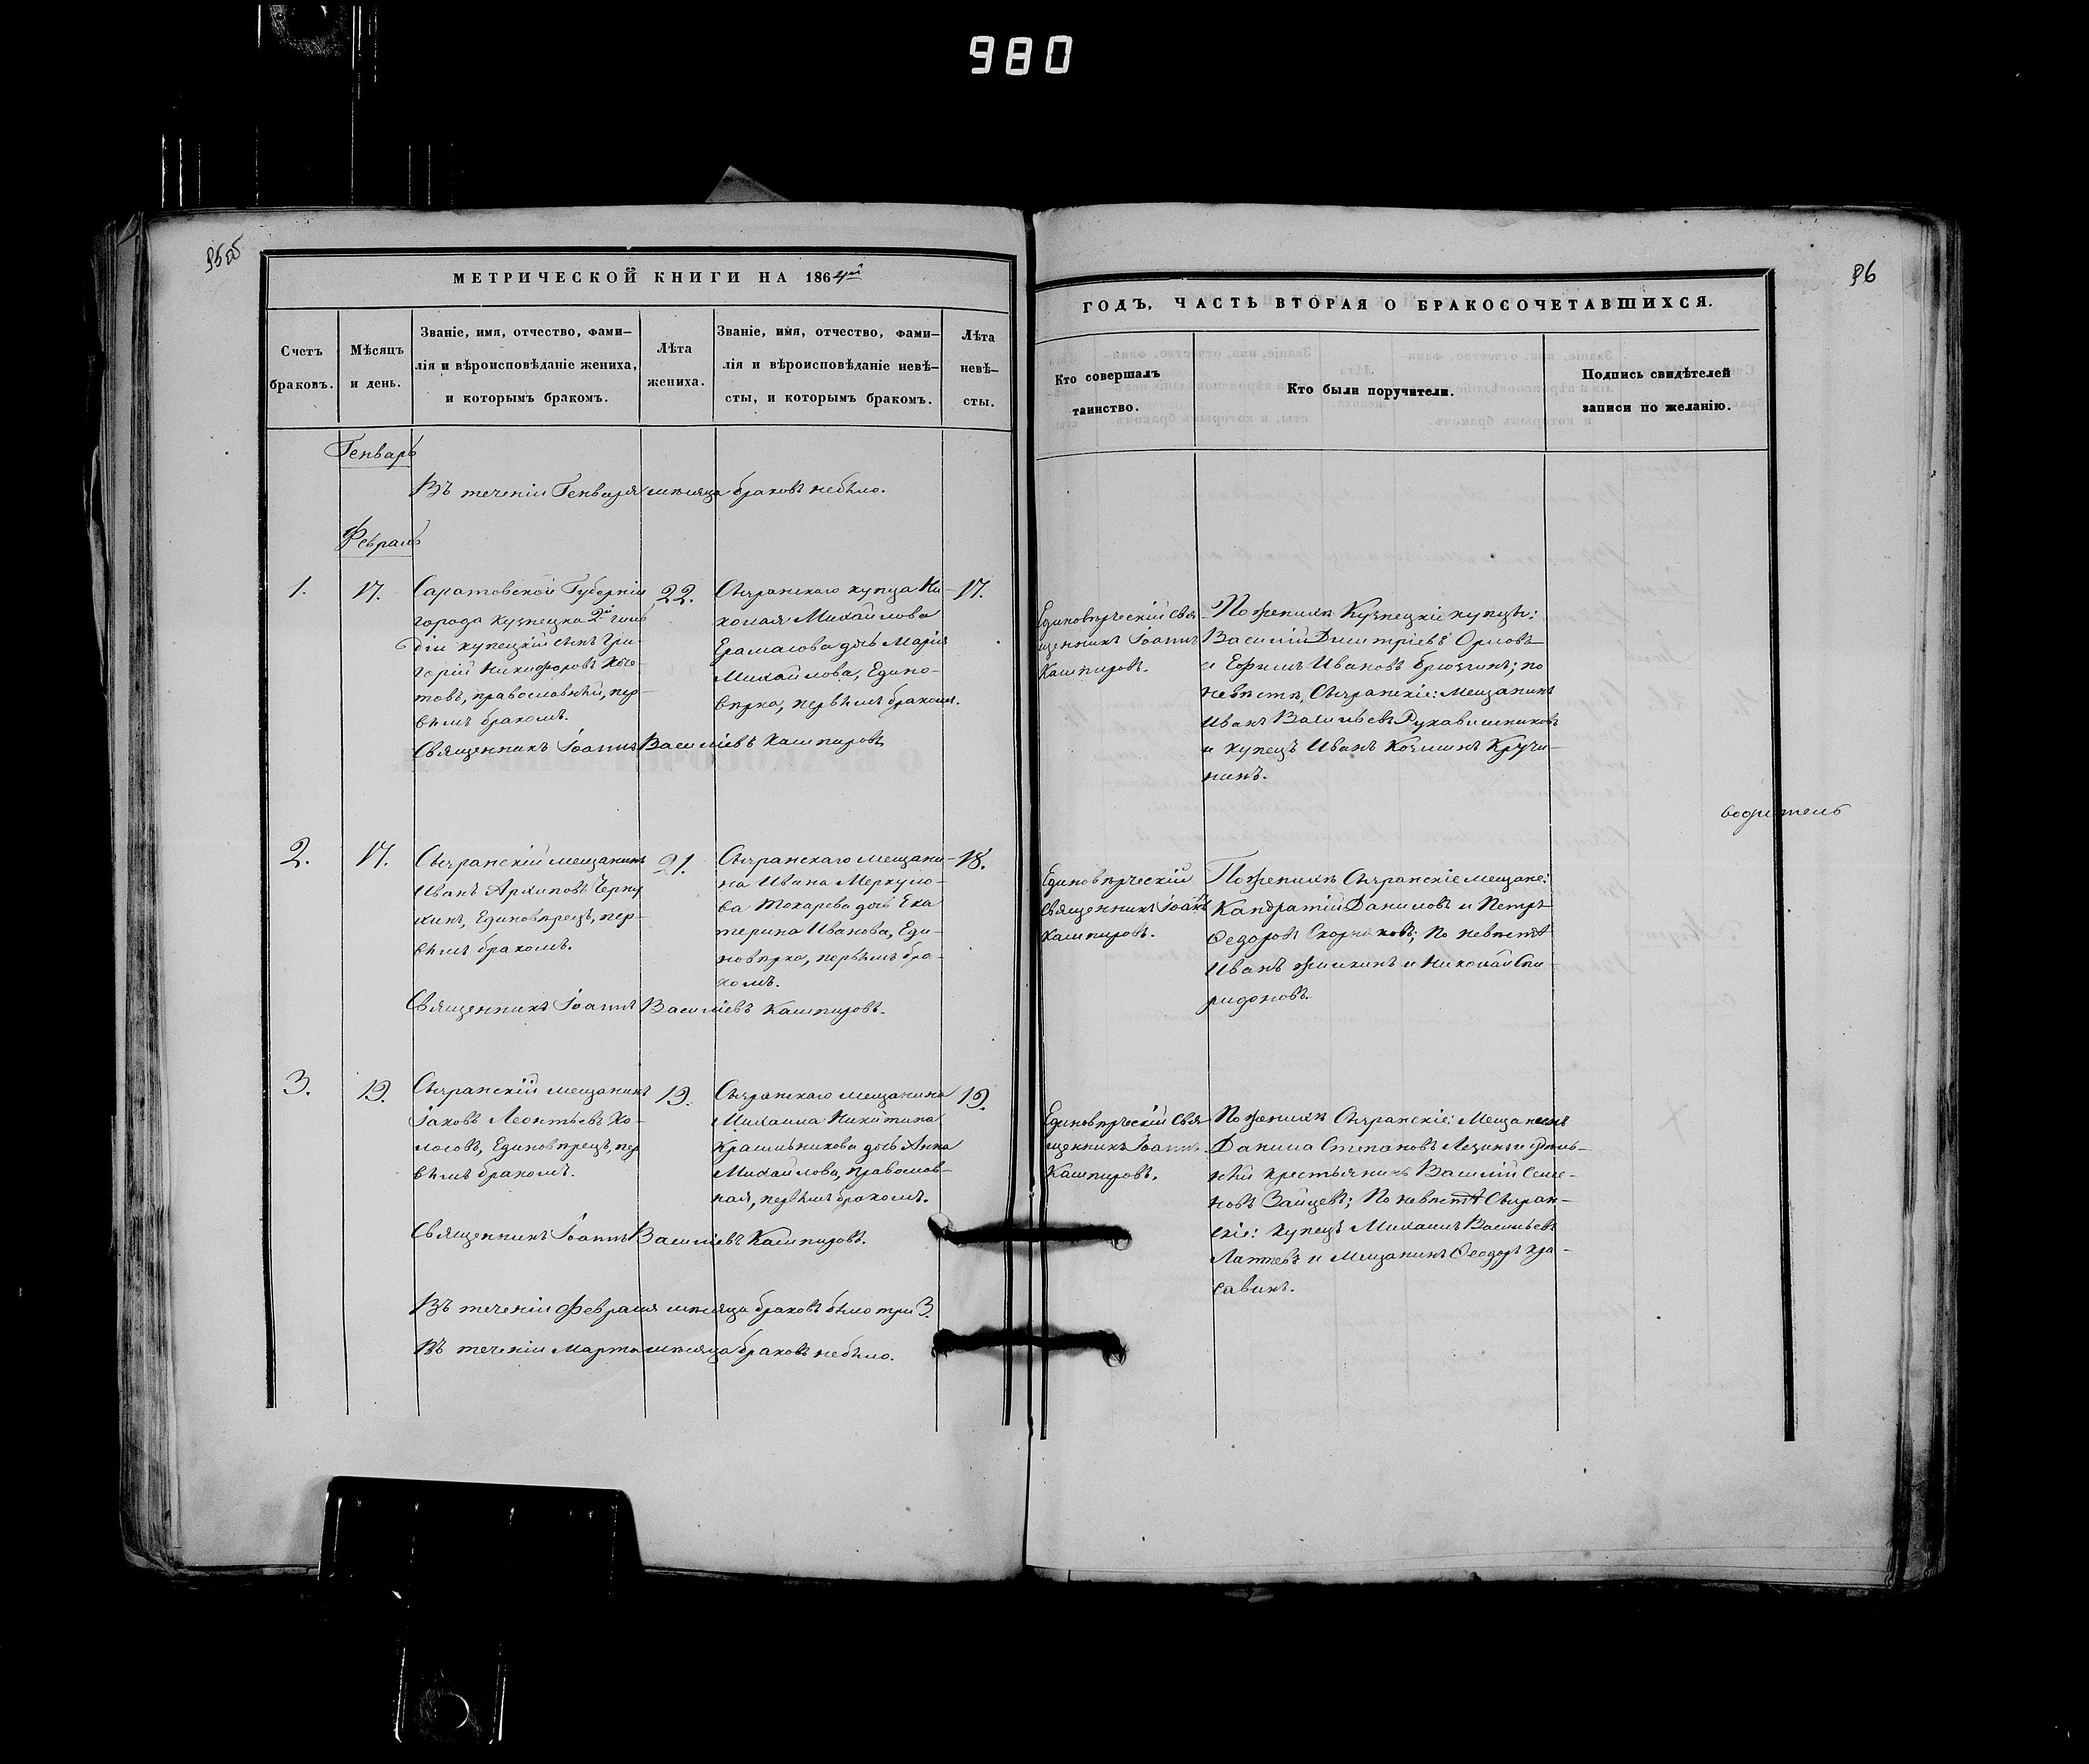 980
95об
МЕТРИЧЕСКОЙ КНИГИ НА 1864й
Счетъ браковъ.
Мѣсяцъ и день.
Званіе, имя, отчество, фами-
лія и вѣроисповѣданіе жениха,
и которымъ бракомъ.
Лѣта жениха.
Званіе, имя, отчество, фами-
лія и вѣроисповѣданіе невѣ-
сты, и которымъ бракомъ.
Лѣта невѣ-
сты.
Генварь
Въ теченіи Генваря мѣсяца браковъ небыло.
Февраль
1.
17.
Саратовской Губерніи
города Кузнецка 2й гиль
діи купецкій сынъ Гри-
горій Никифоровъ
православный, пер-
вымъ бракомъ.
22.
Сызранскаго купца Ни-
колая Михайлова
дочь Марія
Михайлова, Едино-
вѣрка, первымъ бракомъ.
17.
Священникъ Іоаннъ Василіевъ Кашпировъ
2.
17.
Сызранскій мещанинъ
Иванъ Архиповъ Черну
хинъ, Единовѣрецъ, пер-
вымъ бракомъ.
21.
Сызранскаго мещани-
на Ивана Меркуло-
ва Токарева дочь Ека
терина Иванова, Еди-
новѣрка, первымъ бра-
комъ.
18.
Священникъ Іоаннъ Василіевъ Кашпировъ.
3.
19.
Сызранскій мещанинъ
Іаковъ Леонтьевъ Хо-
лосовъ, Единовѣрецъ, пер
вымъ бракомъ.
19.
Сызранскаго мещанина
Михаила Никитина
Крашильникова дочь Анна
Михайлова, православ-
ная, первымъ бракомъ.
19.
Священникъ Іоаннъ Василіевъ Кашпировъ.
Въ теченіи Февраля мѣсяца браковъ было три 3.
Въ теченіи Марта мѣсяца браковъ небыло.
96
ГОДЪ, ЧАСТЬ ВТОРАЯ О БРАКОСОЧЕТАВШИХСЯ.
Кто совершалъ
таинство.
Кто были поручители.
Подпись свидѣтелей
записи по желанію.
Единовѣрческій свя-
щенникъ Іоаннъ
Кашпировъ.
По женихѣ Кузнецкіе купцы:
Василій Дмитріевъ Орловъ
и Ефимъ Ивановъ Брюзгинъ; по
невѣстѣ, Сызранскіе: Мещанинъ
Иванъ Васильевъ Рукавишниковъ
и купецъ Иванъ Козминъ Кручи-
нинъ.
водитель
Единовѣрческій
священникъ Іоаннъ
Кашпировъ.
По женихѣ Сызранскіе мещане:
Кандратій Даниловъ и Петръ
Федоровъ Скорняковъ; по невѣстѣ
Иванъ и Николай Спи-
ридоновъ.
Единовѣрческій свя
щенникъ Іоаннъ
Кашпировъ.
По женихѣ Сызранскіе: Мещанинъ
Данила Степановъ и удѣль-
ный крестьянинъ Василій Семе-
новъ Зайцевъ; По невѣстѣ Сызран-
скіе: купецъ Михаилъ Васильевъ
Латтевъ и Мещанинъ Феодоръ Кра-
савинъ.